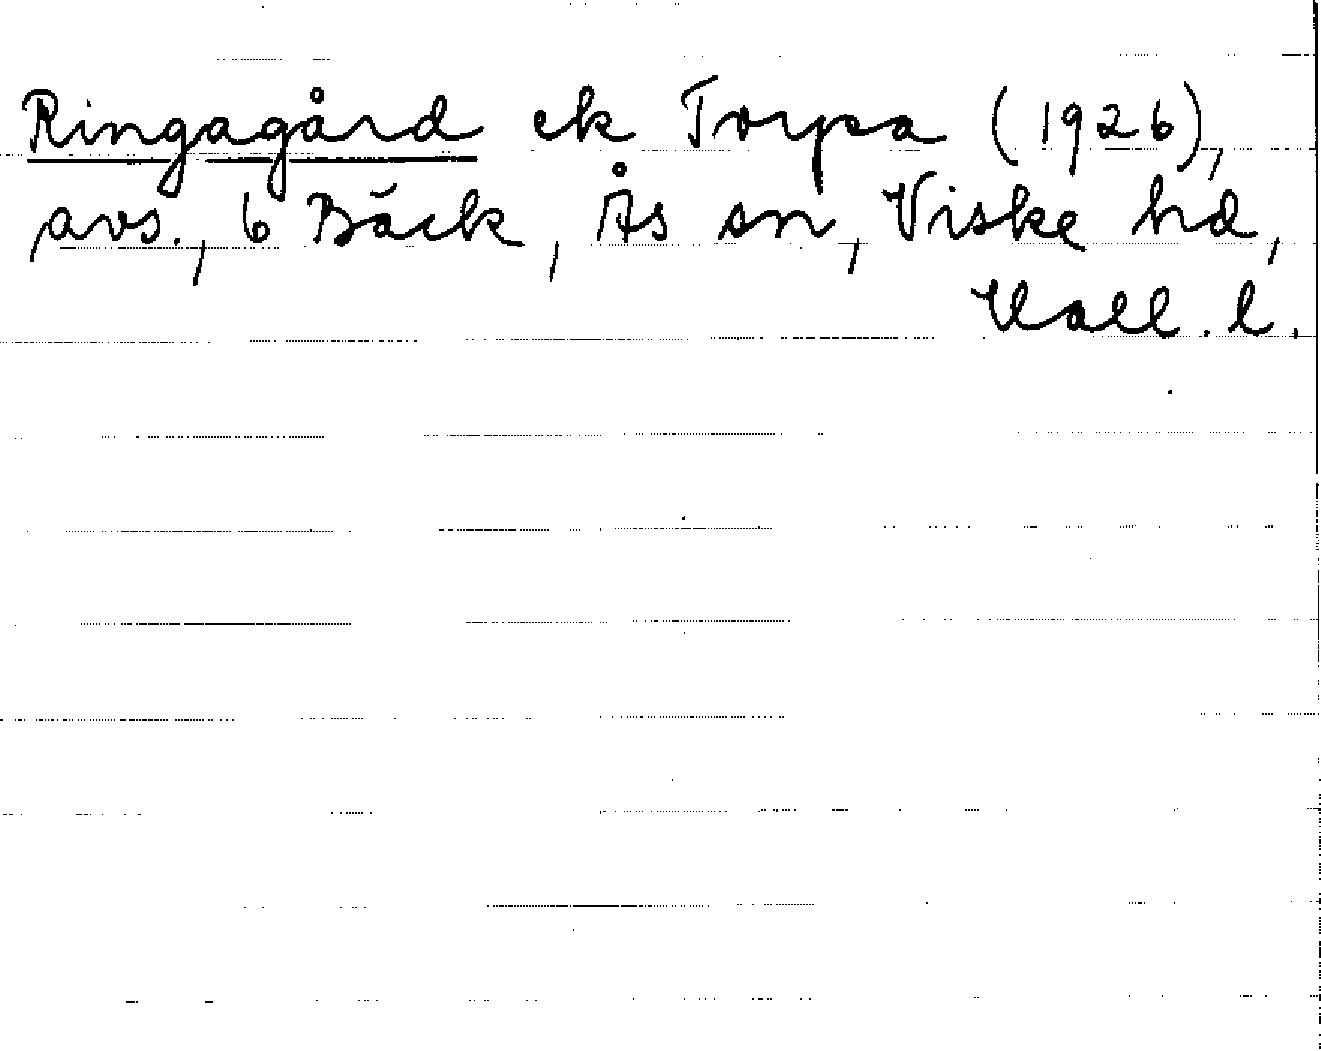 Ringagård ek Torpa (1926),
avs., 6 Bäck, Ås sn, Viske hd,
Hall. l.